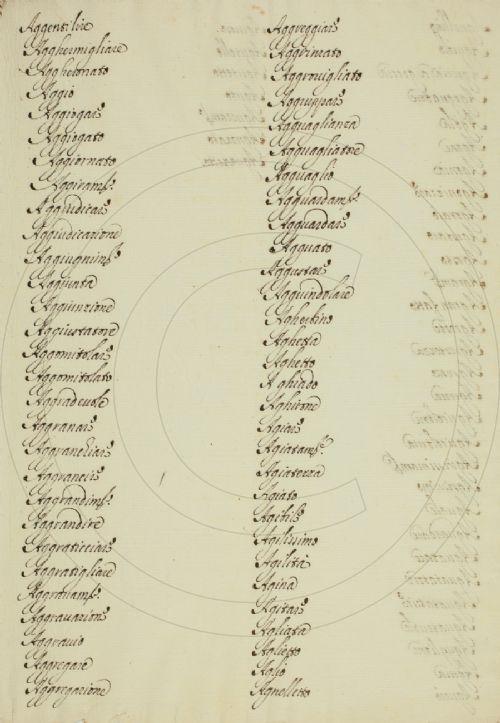 Aggentilire
Agghermigliare
Agghedonato
Aggio
Aggiogare
Aggiogato
Aggiornato
Aggiramto
Aggiudicare
Aggiudicazione
Aggiugnimto
Aggiunta
Aggiunzione
Aggiustatore
Aggomitolare
Aggomitolato
Aggradevole
Aggranare
Aggranellare
Aggrancire
Aggrandimto
Aggrandire
Aggraticciare
Aggratigliare
Aggravamto
Aggravazione
Aggravio
Aggregare
Aggregazione
Aggreggiare
Aggrinzato
Aggrovigliato
Aggruppare
Agguaglianza
Agguagliatore
Agguaglio
Agguardamto
Agguardare
Agguato
Aggustare
Agguindolare
Aghertino
Aghetta
Aghetto
Aghiado
Aghirone
Agiare
Agiatamte
Agiatezza
Agiato
Agibile
Agilissimo
Agilità
Agina
Agitare
Agliata
Aglietto
Aglio
Agnelletto